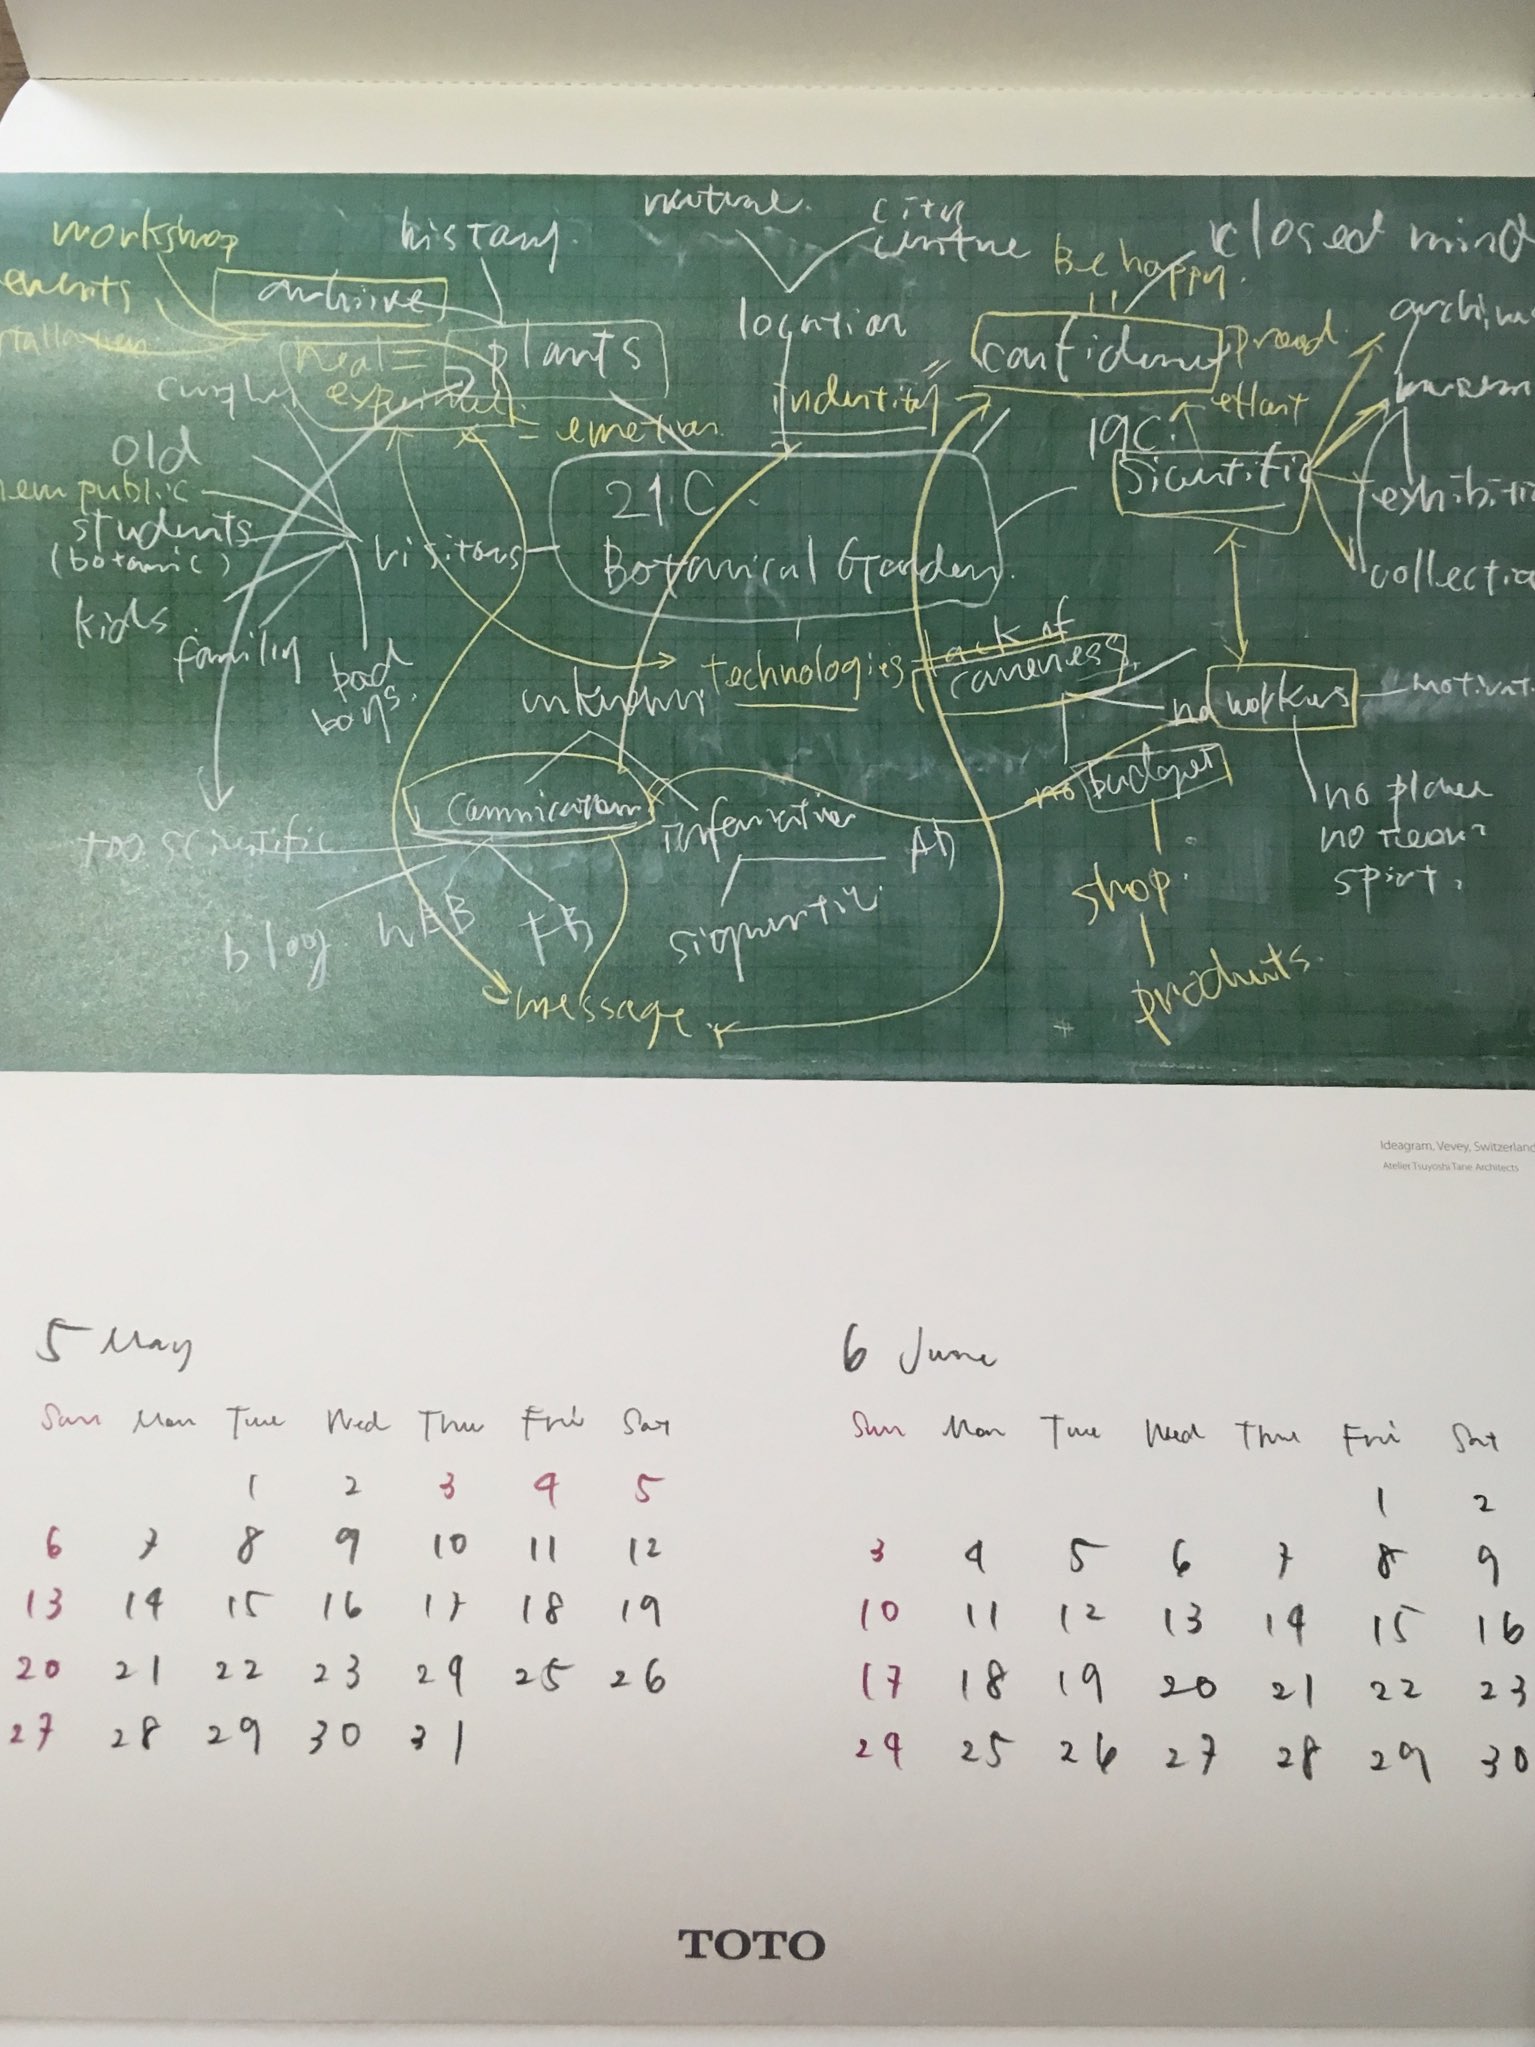 nature.
city
closed mind
workshop
history.
Be happy.
events
archive
location
confidence
proud.
real =
plants
identity
effort
= emotion
19C.
old
21.C
scientific
new public
students
(botanic)
visitors
Botanical Garden.
exhibitio
collectio
kids
family
bad
boys.
lack of
technologies
unknown
no workers
motivat
no budget
no
no
spirit.
too scientific
informative
shop.
blog
WEB
FB
message
products.
Ideagram, Vevey, Switzerland
Atelier Tsuyoshi Tane Architects
5 May
Sun Mon Tue Wed Thu Fri Sat
1 2 3 4 5
6 7 8 9 10 11 12
13 14 15 16 17 18 19
20 21 22 23 24 25 26
27 28 29 30 31
6 June
Sun Mon Tue Wed Thu Fri Sat
1 2
3 4 5 6 7 8 9
10 11 12 13 14 15 16
17 18 19 20 21 22 23
24 25 26 27 28 29 30
TOTO